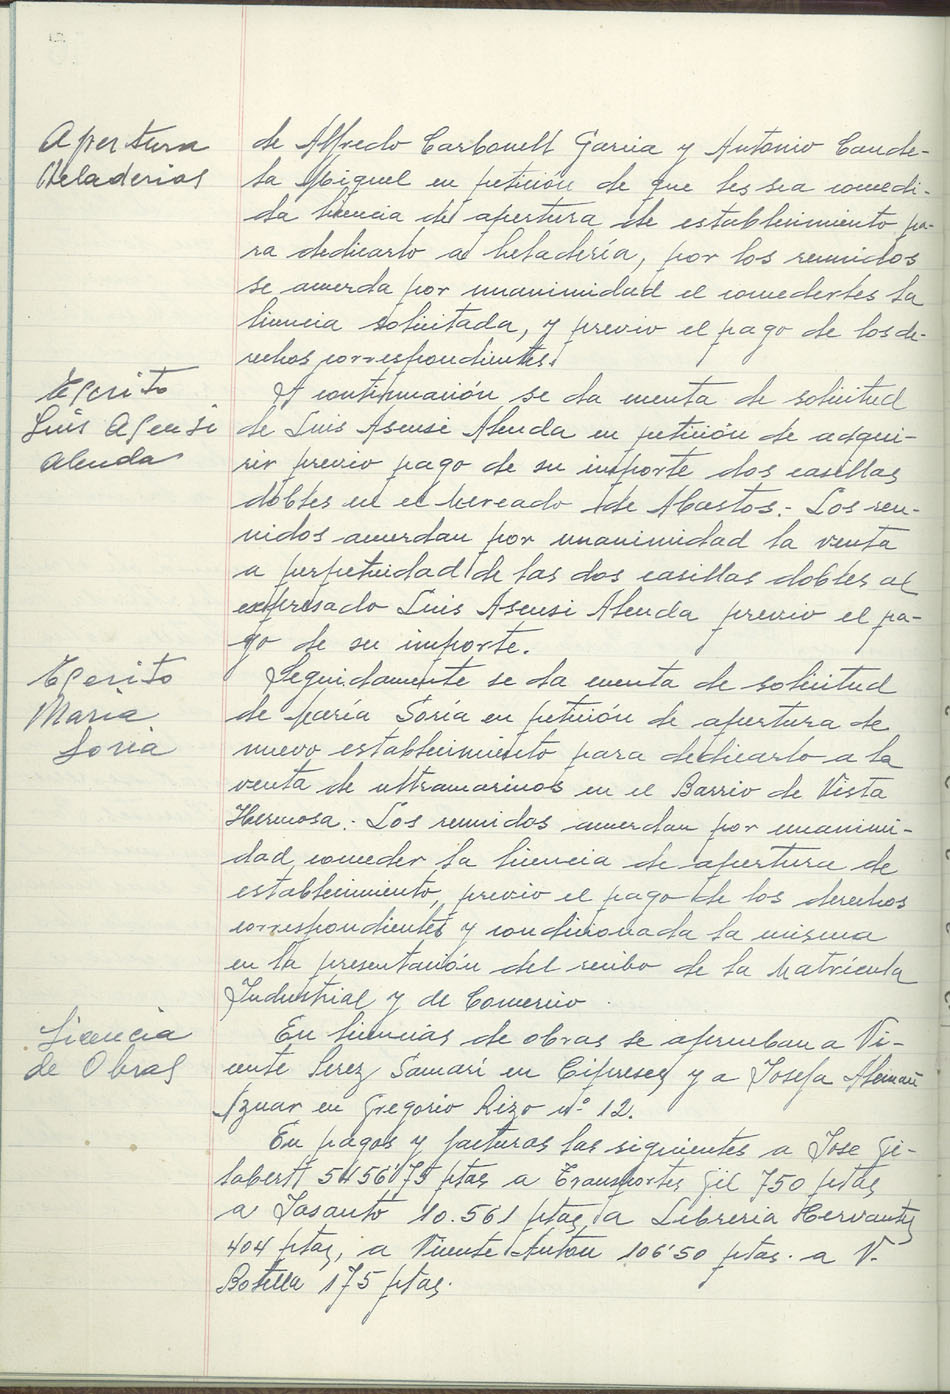 Apertura
Heladerias
de Alfredo Carbonell Garcia y Antonio Cande-
la Miguel en petición de que les sea concedi-
da licencia de apertura de establecimiento pa-
ra dedicarlo a heladería, por los reunidos
se acuerda por unanimidad el concederles la
licencia solicitada, y previo el pago de los de-
rechos correspondientes.
Escrito
Luis Asensi
Alenda
A continuación se da cuenta de solicitud
de Luis Asensi Alenda en petición de adqui-
rir previo pago de su importe dos casillas
dobles en el Mercado de Abastos.- Los reu-
nidos acuerdan por unanimidad la venta
a perpetuidad de las dos casillas dobles al
expresado Luis Asensi Alenda previo el pa-
go de su importe.
Escrito
Maria
Soria
Seguidamente se da cuenta de solicitud
de María Soria en petición de apertura de
nuevo establecimiento para dedicarlo a la
venta de ultramarinos en el Barrio de Vista
Hermosa.- Los reunidos acuerdan por unanimi-
dad conceder la licencia de apertura de
establecimiento, previo el pago de los derechos
correspondientes y condicionada la misma
en la presentación del recibo de la Matrícula
Industrial y de Comercio.
Licencia
de Obras
En licencias de obras se aprueban a Vi-
cente Perez Samarí en Cipreses y a Josefa Alemañ
Aznar en Gregorio Rizo nº 12.
En pagos y facturas las siguientes a Jose Gi-
labert 5456'75 ptas a Transportes Gil 750 ptas
a Jasanto 10.561 ptas, a Libreria Hervantes
404 ptas, a Vicente Anton 106'50 ptas. a V.
Botella 175 ptas.